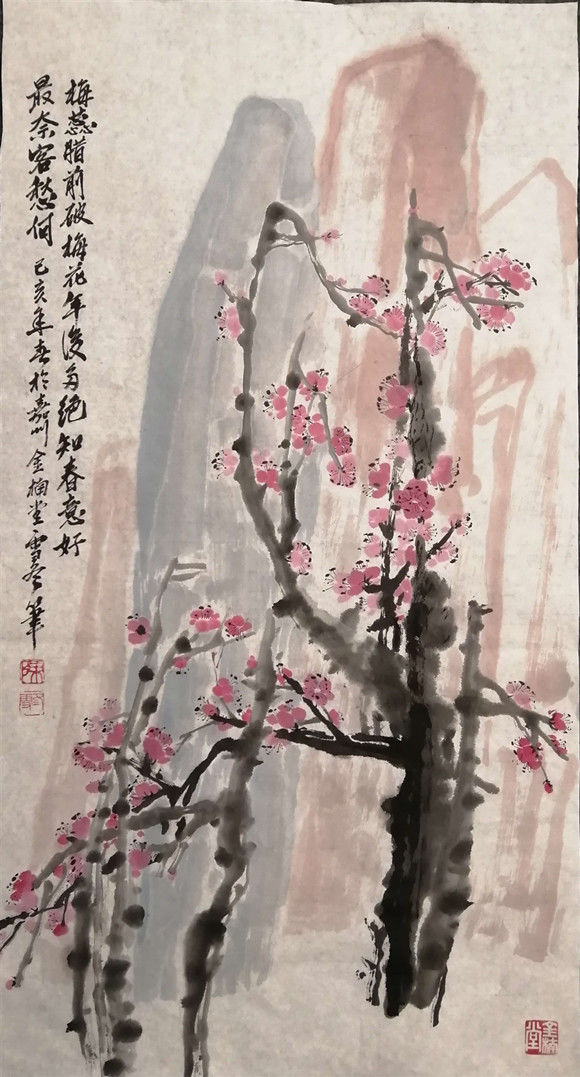 梅蕊腊前破梅花年後多绝知春意好
最奈客愁何 己亥年春於嘉州金楠堂雪岑笔
金楠堂